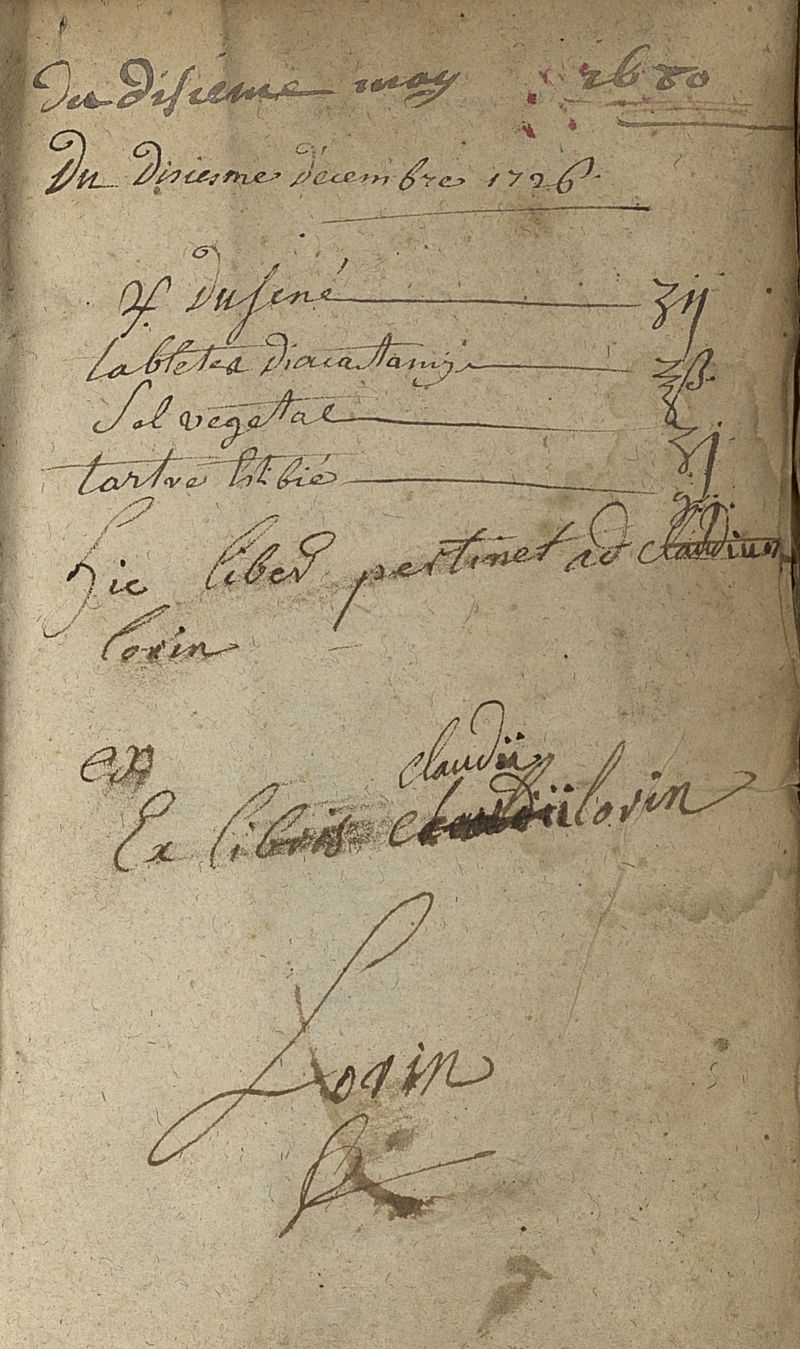 du disieme may 1680
Du Disiesme décembre 1726
♃. Du sené ʒij
tabletes diacartami ʒß.
Sel vegetal ʒj
tartre stibié gr. ij.
Hic liber pertinet ad claudium
lorin
ex
claudii
Ex libris lorin
Lorin